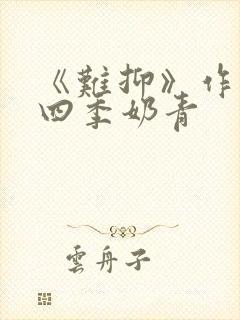 《難抑》作
四季奶青
雲舟子